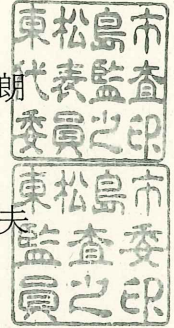 朗
東松島市
代表監査
委員之印
夫
東松島市
監査委
員之印